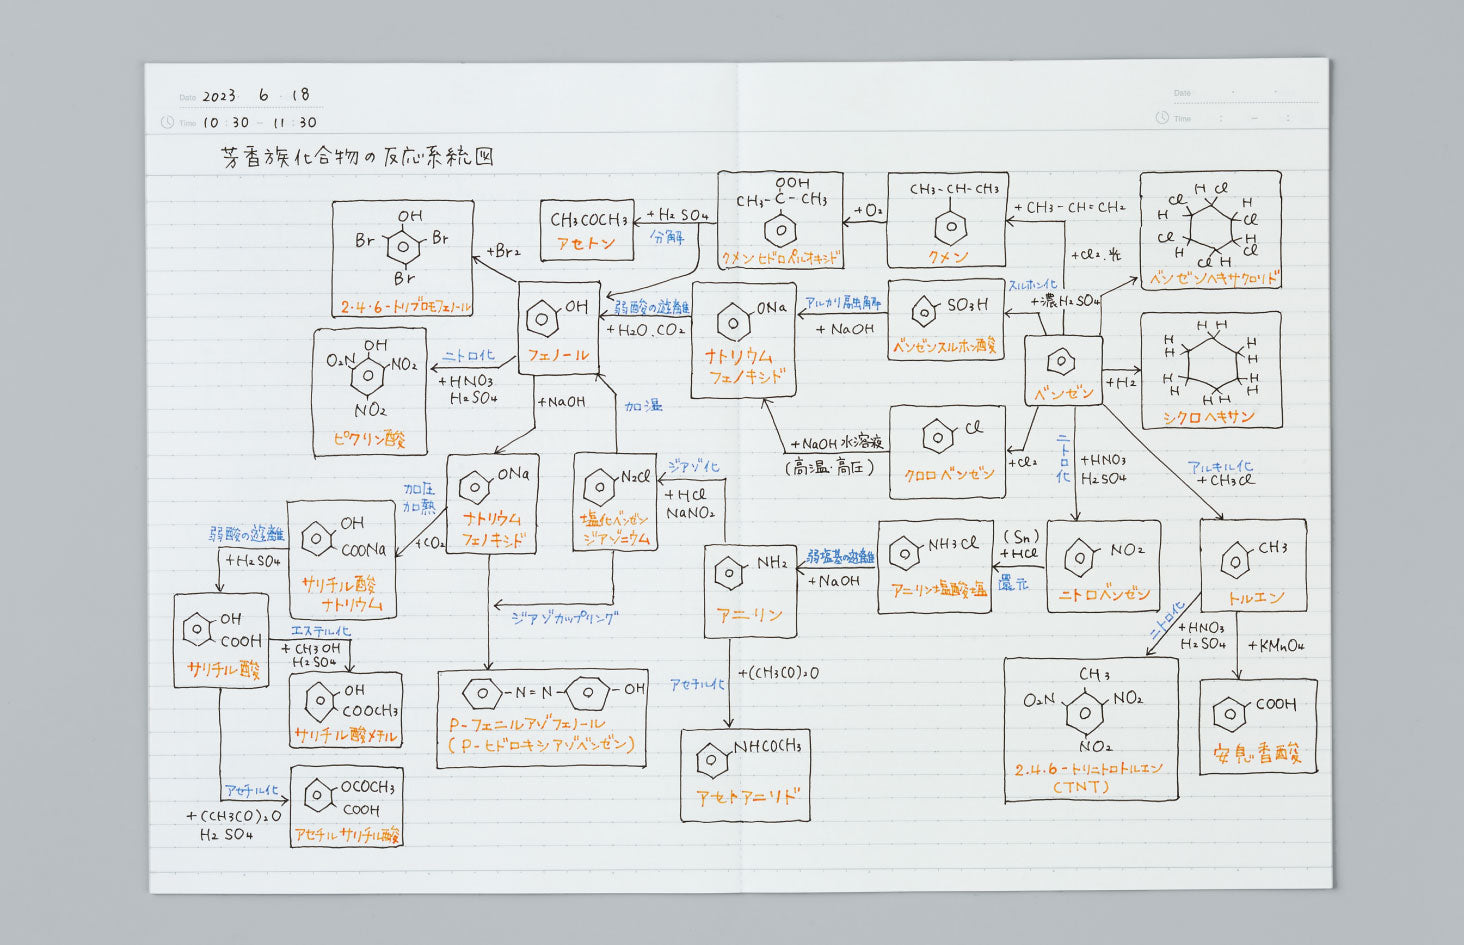 Date 2023 6 · 18
Time 10 : 30 - 11 : 30
Date · ·
Time : - :
芳香族化合物の反応系統図
OH
Br
Br
Br
2.4.6-トリブロモフェノール
+Br2
CH3COCH3
アセトン
+H2SO4
分解
OOH
CH3-C-CH3
クメンヒドロペルオキシド
+O2
CH3-CH-CH3
クメン
+CH3-CH=CH2
+Cl2.光
H Cl
Cl
H
H
Cl
Cl
H
H
Cl
Cl H
ベンゼンヘキサクロリド
OH
フェノール
弱酸の遊離
+H2O.CO2
ONa
ナトリウム
フェノキシド
アルカリ融解
+NaOH
SO3H
ベンゼンスルホン酸
スルホン化
+濃H2SO4
ベンゼン
+H2
H H
H
H
H
H
H
H
H
H
H H
シクロヘキサン
OH
O2N
NO2
NO2
ピクリン酸
ニトロ化
+HNO3
H2SO4
+NaOH
加温
+NaOH水溶液
(高温・高圧)
Cl
クロロベンゼン
+Cl2
ニトロ化
+HNO3
H2SO4
アルキル化
+CH3Cl
ONa
ナトリウム
フェノキシド
加圧
加熱
+CO2
N2Cl
塩化ベンゼン
ジアゾニウム
ジアゾ化
+HCl
NaNO2
弱酸の遊離
+H2SO4
OH
COONa
サリチル酸
ナトリウム
NH2
アニリン
弱塩基の遊離
+NaOH
NH3Cl
アニリン塩酸塩
(Sn)
+HCl
還元
NO2
ニトロベンゼン
CH3
トルエン
ジアゾカップリング
OH
COOH
サリチル酸
エステル化
+CH3OH
H2SO4
OH
COOCH3
サリチル酸メチル
-N=N-
-OH
P-フェニルアゾフェノール
(P-ヒドロキシアゾベンゼン)
アセチル化
+(CH3CO)2O
NHCOCH3
アセトアニリド
ニトロ化
+HNO3
H2SO4
+KMnO4
CH3
O2N
NO2
NO2
2.4.6-トリニトロトルエン
(TNT)
COOH
安息香酸
アセチル化
+(CH3CO)2O
H2SO4
OCOCH3
COOH
アセチルサリチル酸